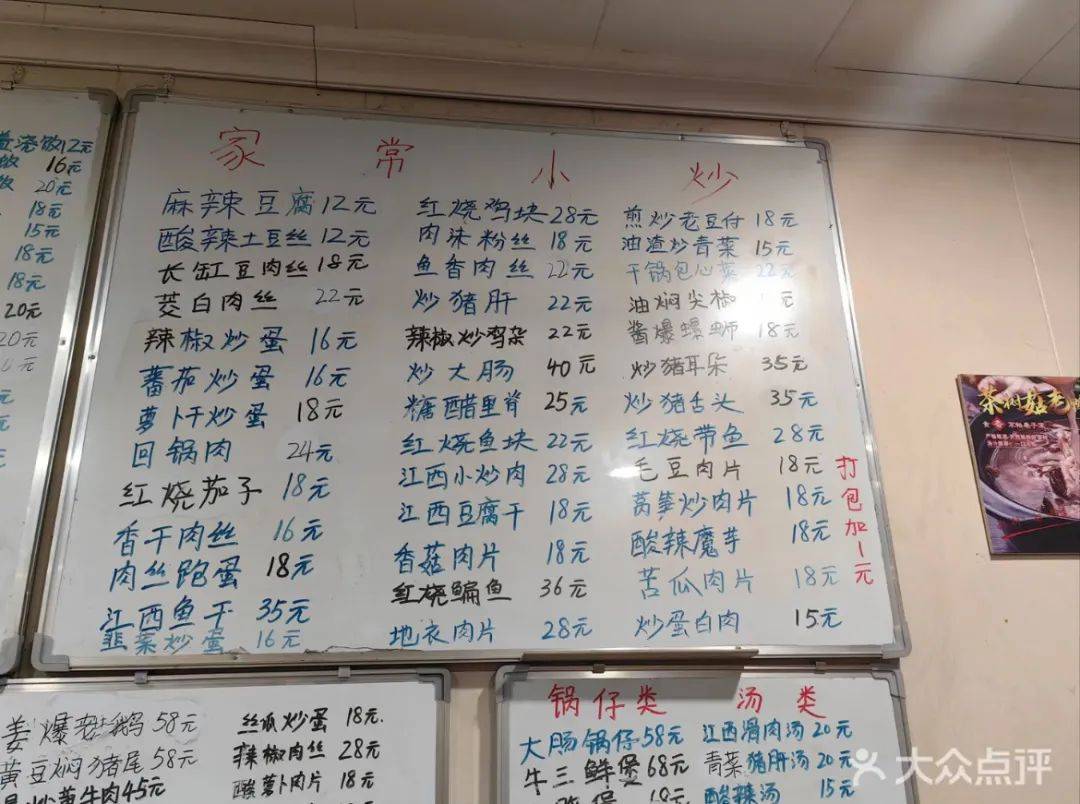 12元
16元
20元
18元
15元
18元
18元
20元
20元
家常小炒
麻辣豆腐12元
酸辣土豆丝12元
长缸豆肉丝18元
茭白肉丝 22元
辣椒炒蛋 16元
蕃茄炒蛋 16元
萝卜干炒蛋 18元
回锅肉 24元
红烧茄子 18元
香干肉丝 16元
肉丝跑蛋 18元
江西鱼干 35元
韭菜炒蛋 16元
红烧鸡块28元
肉沫粉丝 18元
鱼香肉丝 22元
炒猪肝 22元
辣椒炒鸡杂 22元
炒大肠 40元
糖醋里脊 25元
红烧鱼块 22元
江西小炒肉 28元
江西豆腐干 18元
香菇肉片 18元
红烧鳊鱼 36元
地衣肉片 28元
煎炒老豆付 18元
油渣炒青菜 15元
干锅包心菜 22元
油焖尖椒 元
酱爆螺蛳 18元
炒猪耳朵 35元
炒猪舌头 35元
红烧带鱼 28元
毛豆肉片 18元
莴笋炒肉片 18元
酸辣魔芋 18元
苦瓜肉片 18元
炒蛋白肉 15元
打包加1元
姜爆 鹅 58元
黄豆焖猪尾 58元
牛肉45元
丝瓜炒蛋 18元
辣椒肉丝 28元
酸萝卜肉片 18元
锅仔类
大肠锅仔58元
牛三鲜煲 68元
煲
汤类
江西滑肉汤 20元
青菜猪肝汤 20元
酸辣汤 15元
大众点评